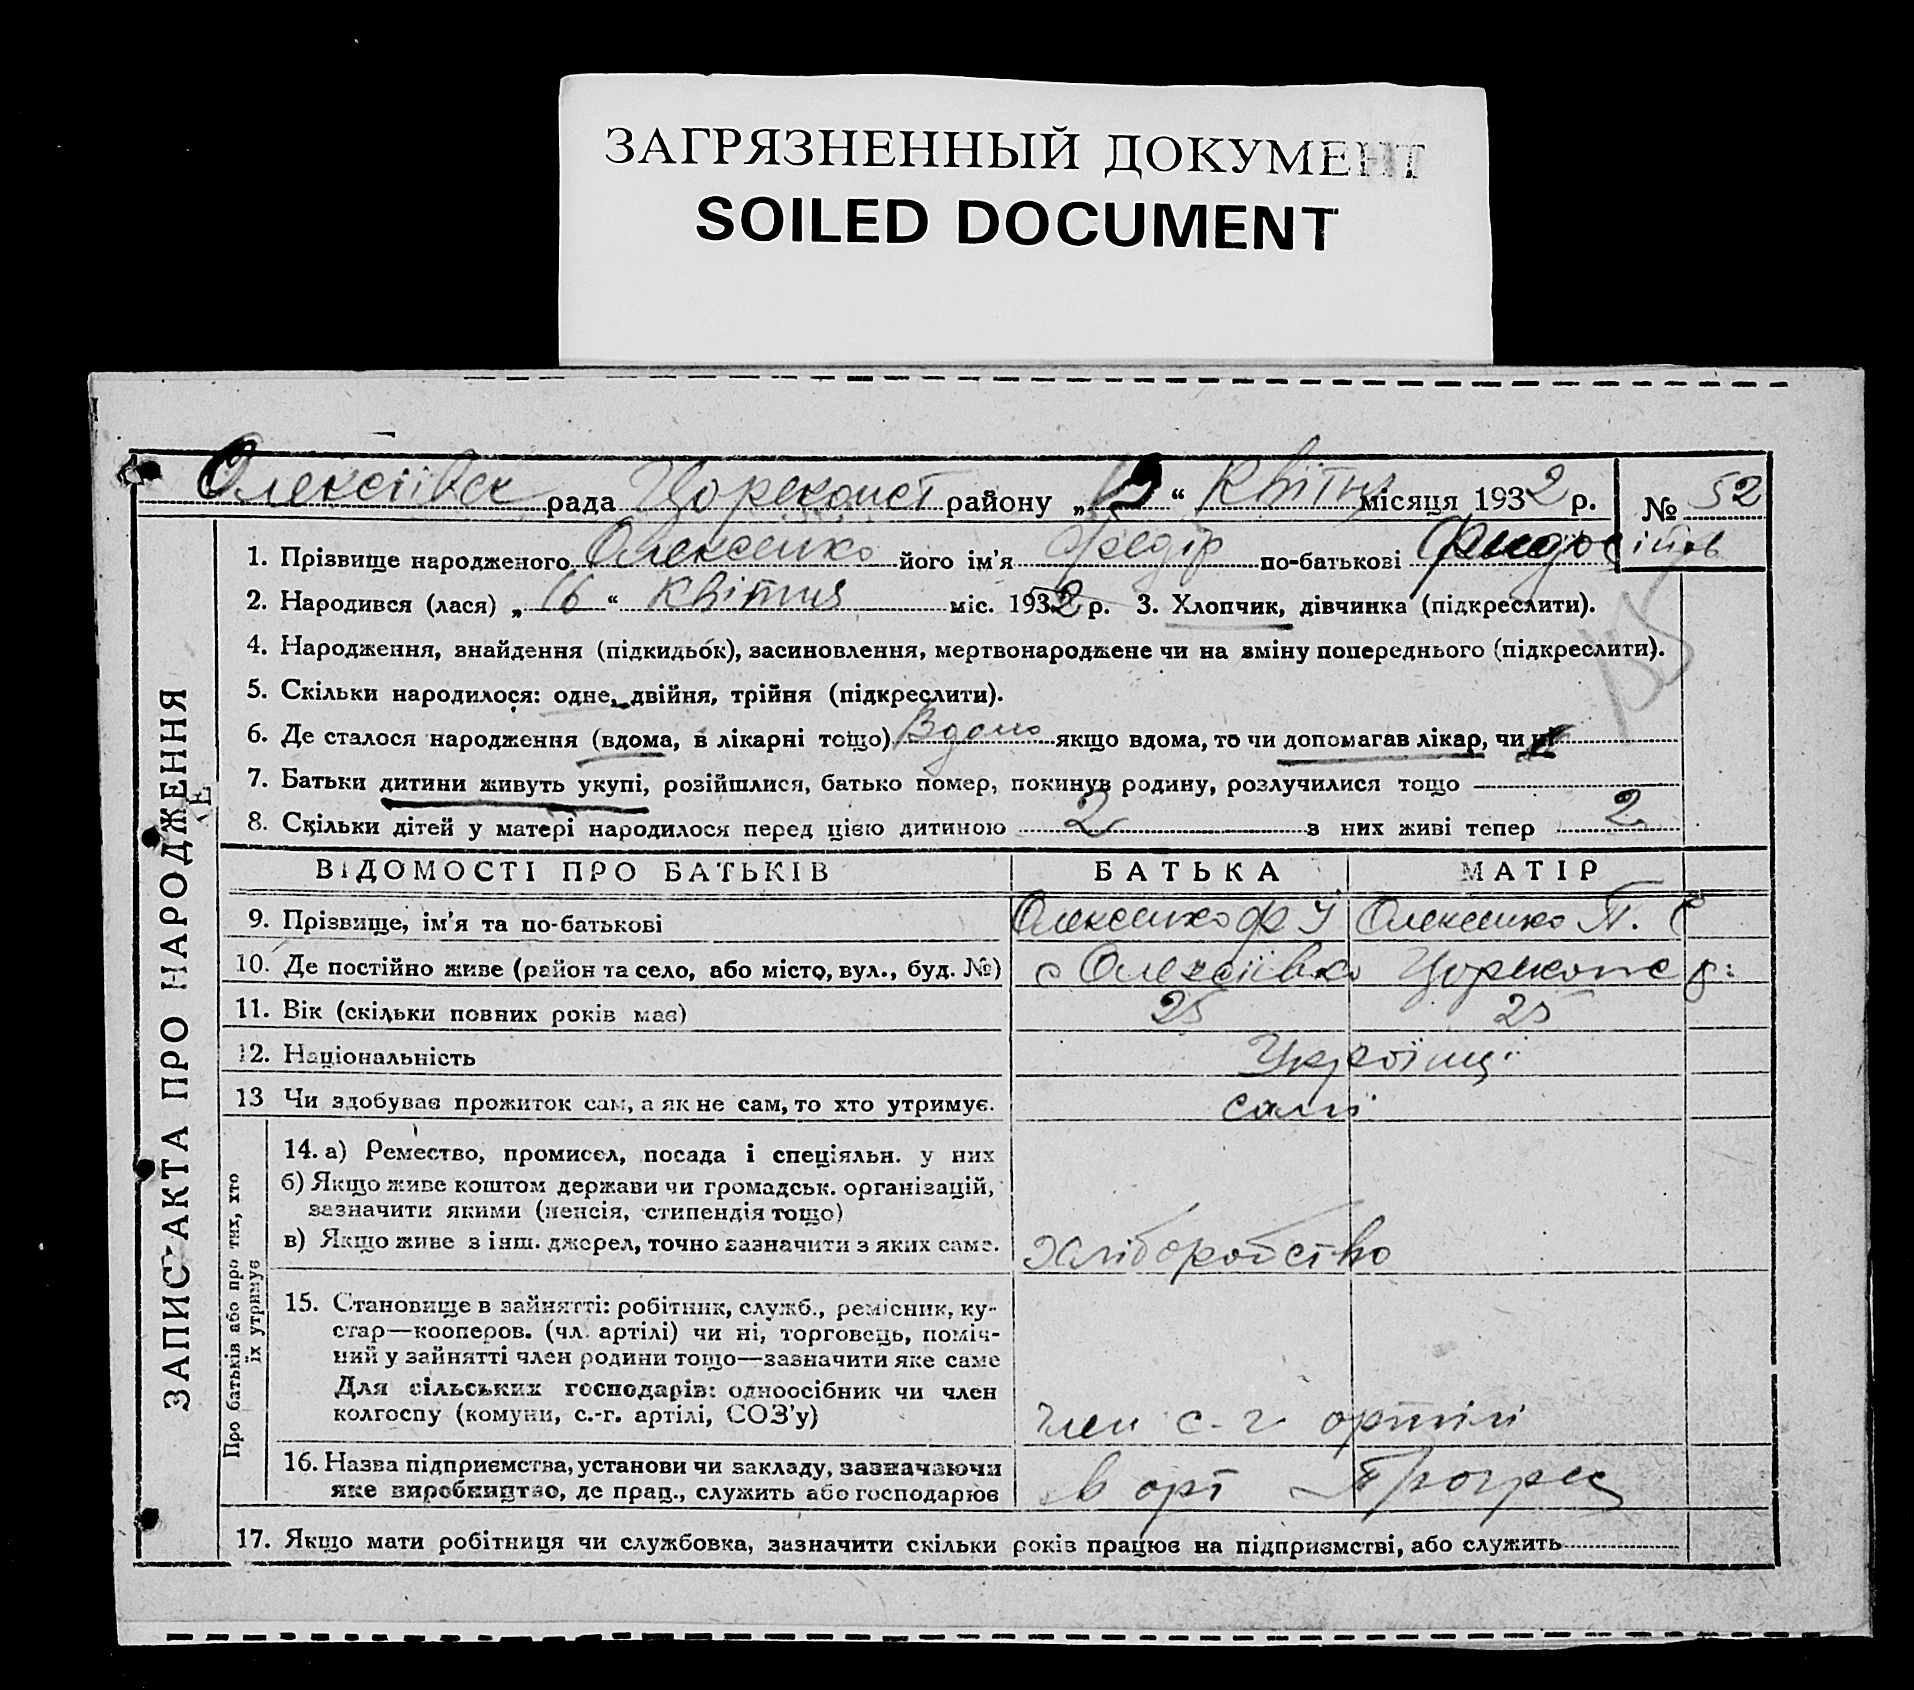 ЗАГРЯЗНЕННЫЙ ДОКУМЕНТ
SOILED DOCUMENT
Олексіївск рада Цареконст району „19“ Квітня місяця 1932 р. № 52
1. Прізвище народженого Олексенко його ім'я Федір по-батькові
2. Народився (лася) „16“ Квітня міс. 1932 р. 3. Хлопчик, дівчинка (підкреслити).
4. Народження, знайдення (підкидьок), засиновлення, мертвонароджене чи на зміну попереднього (підкреслити).
5. Скільки народилося: одне, двійня, трійня (підкреслити).
6. Де сталося народження (вдома, в лікарні тощо) Вдома якщо вдома, то чи допомагав лікар, чи ні
7. Батьки дитини живуть укупі, розійшлися, батько помер, покинув родину, розлучилися тощо
8. Скільки дітей у матері народилося перед цією дитиною 2 з них живі тепер 2
ЗАПИС АКТА ПРО НАРОДЖЕННЯ
ВІДОМОСТІ ПРО БАТЬКІВ БАТЬКА МАТІР
9. Прізвище, ім'я та по-батькові Олексенко Ф І Олексенко П. Є
10. Де постійно живе (район та село, або місто, вул., буд. №) с Олексіївка
11. Вік (скільки повних років має) 25 25
12. Національність Українці
13 Чи здобуває прожиток сам, а як не сам, то хто утримує. самі
Про батьків або про тих, хто
їх утримує
14. а) Ремество, промисел, посада і спеціяльн. у них
б) Якщо живе коштом держави чи громадськ. організацій,
зазначити якими (пенсія, стипендія тощо)
в) Якщо живе з інш. джерел, точно зазначити з яких саме. хліборобство
15. Становище в зайнятті: робітник, служб., ремісник, ку-
стар—кооперов. (чл. артілі) чи ні, торговець, поміч-
ний у зайнятті член родини тощо—зазначити яке саме
Для сільських господарів: одноосібник чи член
колгоспу (комуни, с.-г. артілі, СОЗ'у) член с-г артілі
16. Назва підприємства, установи чи закладу, зазначаючи
яке виробництво, де прац., служить або господарює в арт Прогрес
17. Якщо мати робітниця чи службовка, зазначити скільки років працює на підприємстві, або служить